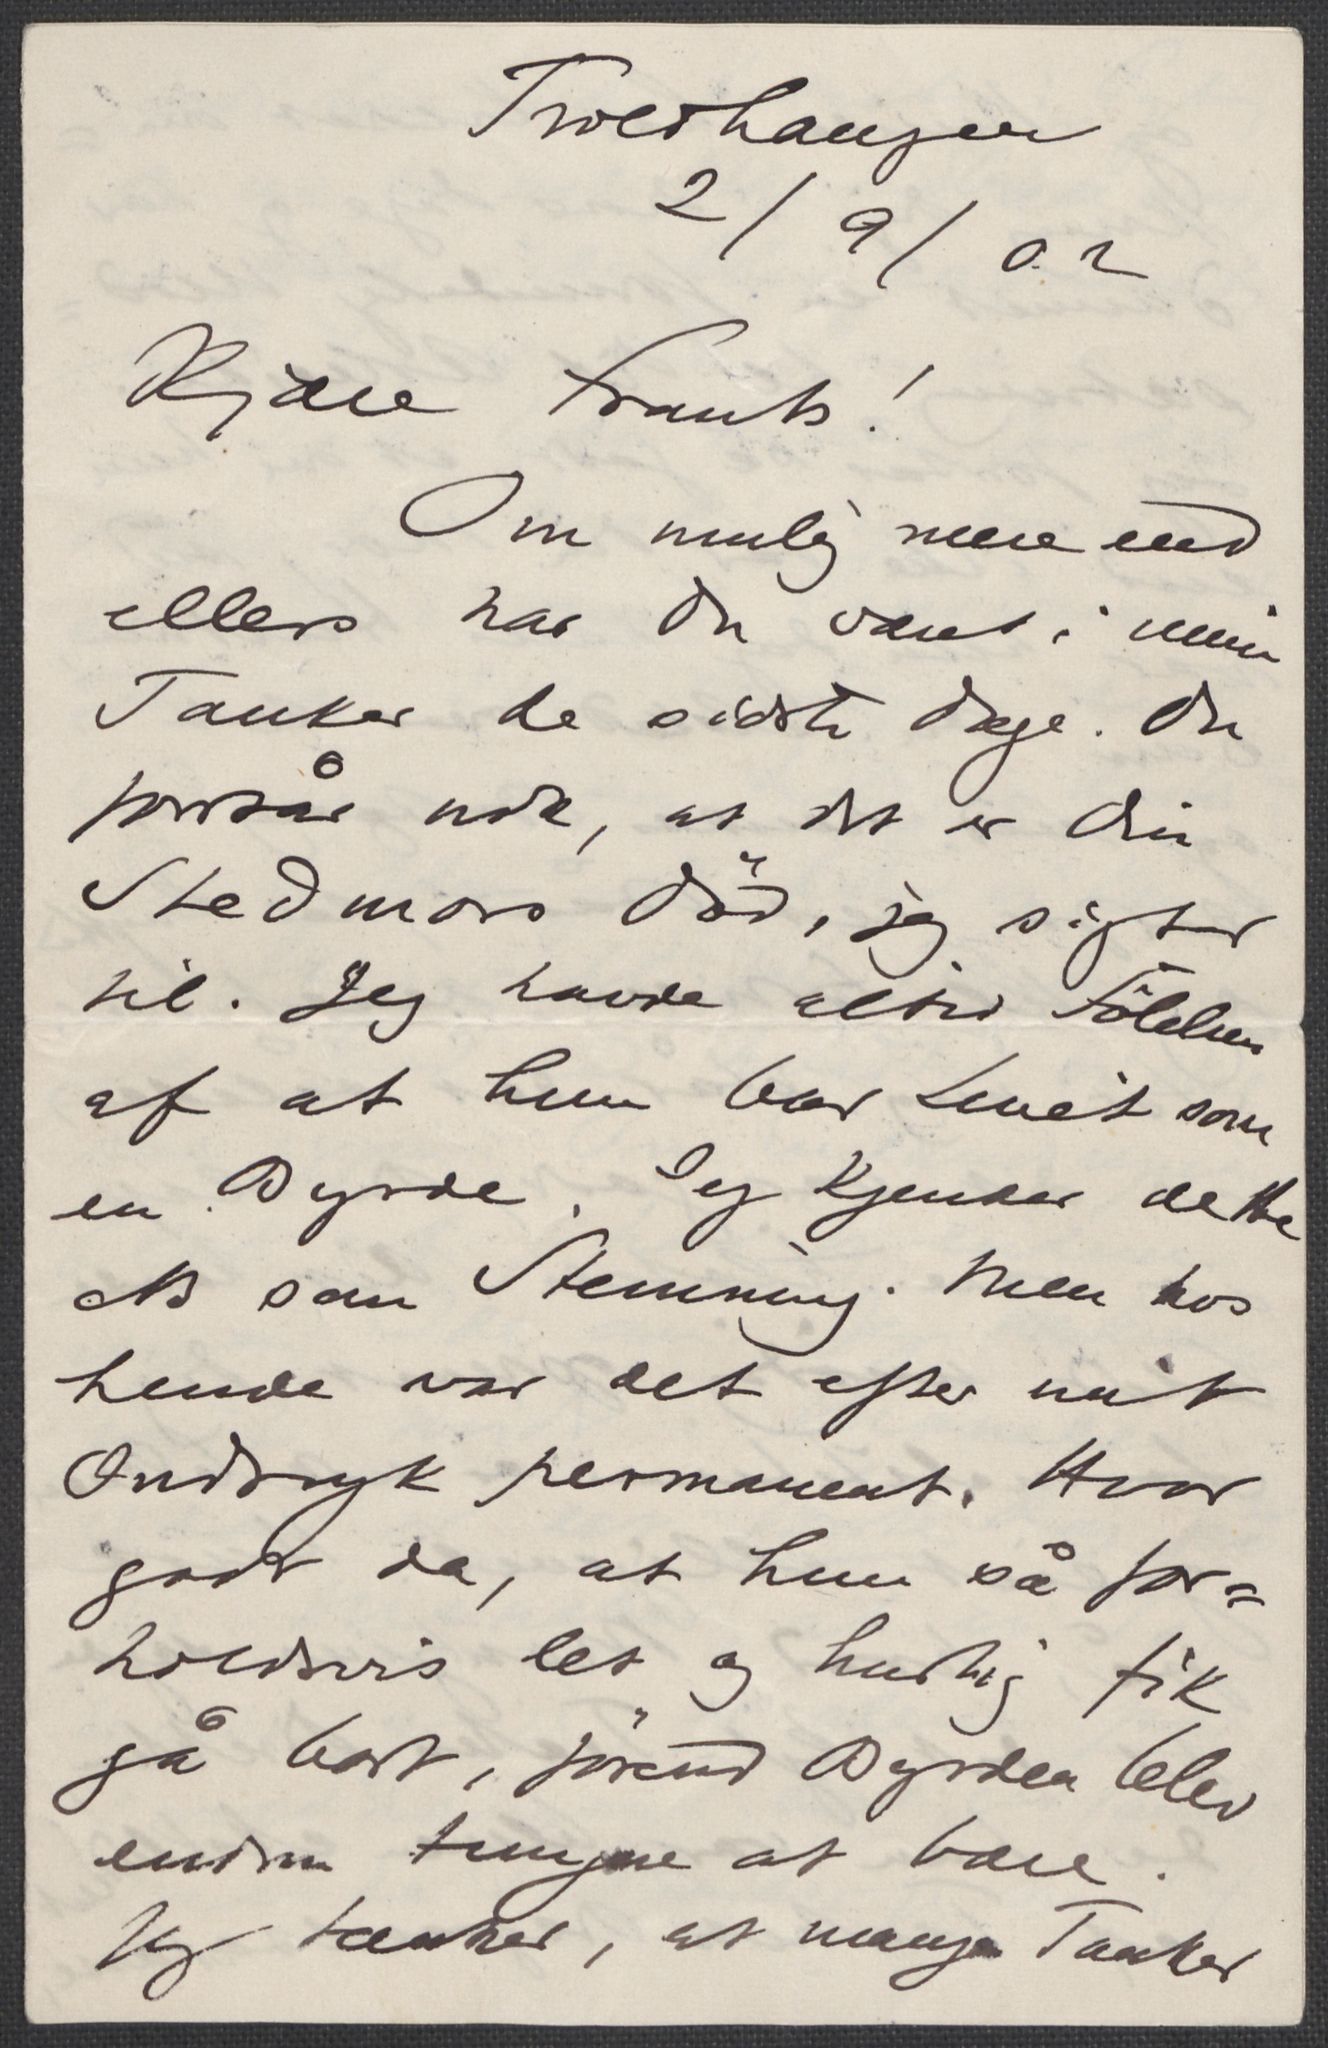 Troldhaugen
2/9/02
Kjære Frants!
Om mulig mere end
ellers har Du været i mine
Tanker de sidste Dage. Du
forstår nok, at det er Din
Stedmors Död, jeg sigter
til. Jeg havde altid Fölelsen
af at hun bar Livet som
en Byrde. Jeg kjender dette
som Stemning. Men hos
hende var det efter mit
Indtryk permanent. Hvor
godt da, at hun så for=
holdsvis let og hurtig fik
gå bort, förend Byrden blev
endnu tungere at bære.
Jeg tænker, at mange Tanker